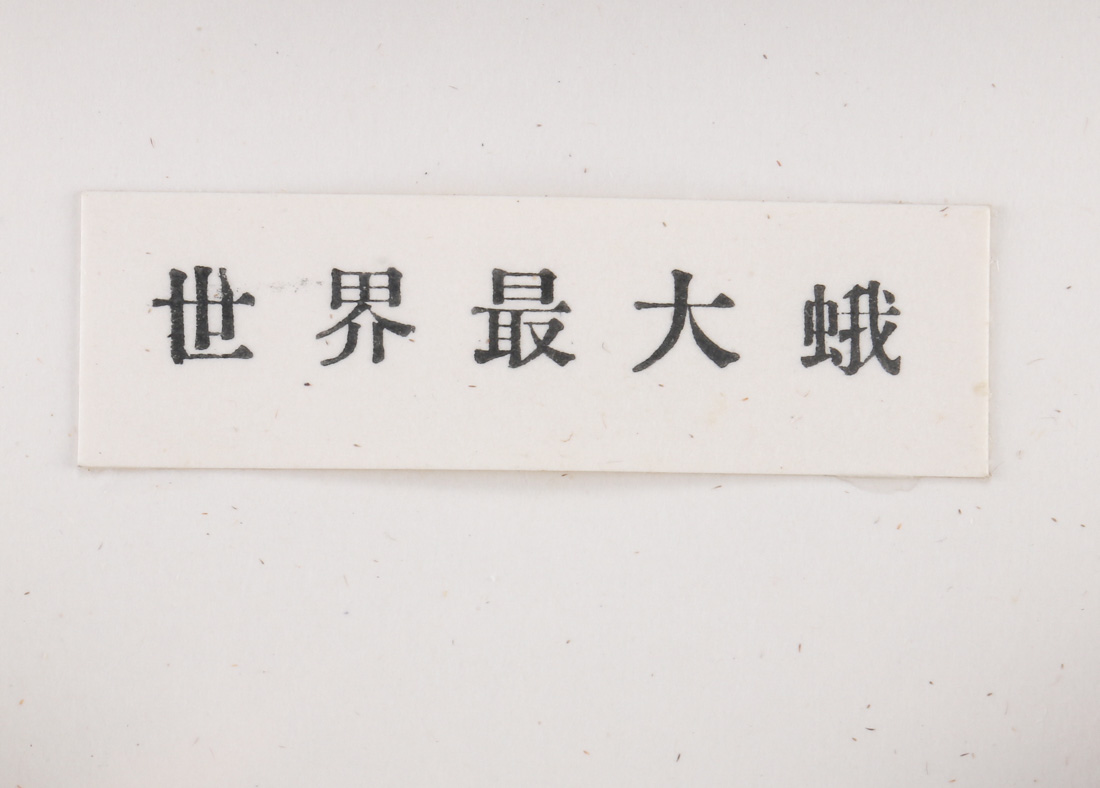 世界最大蛾